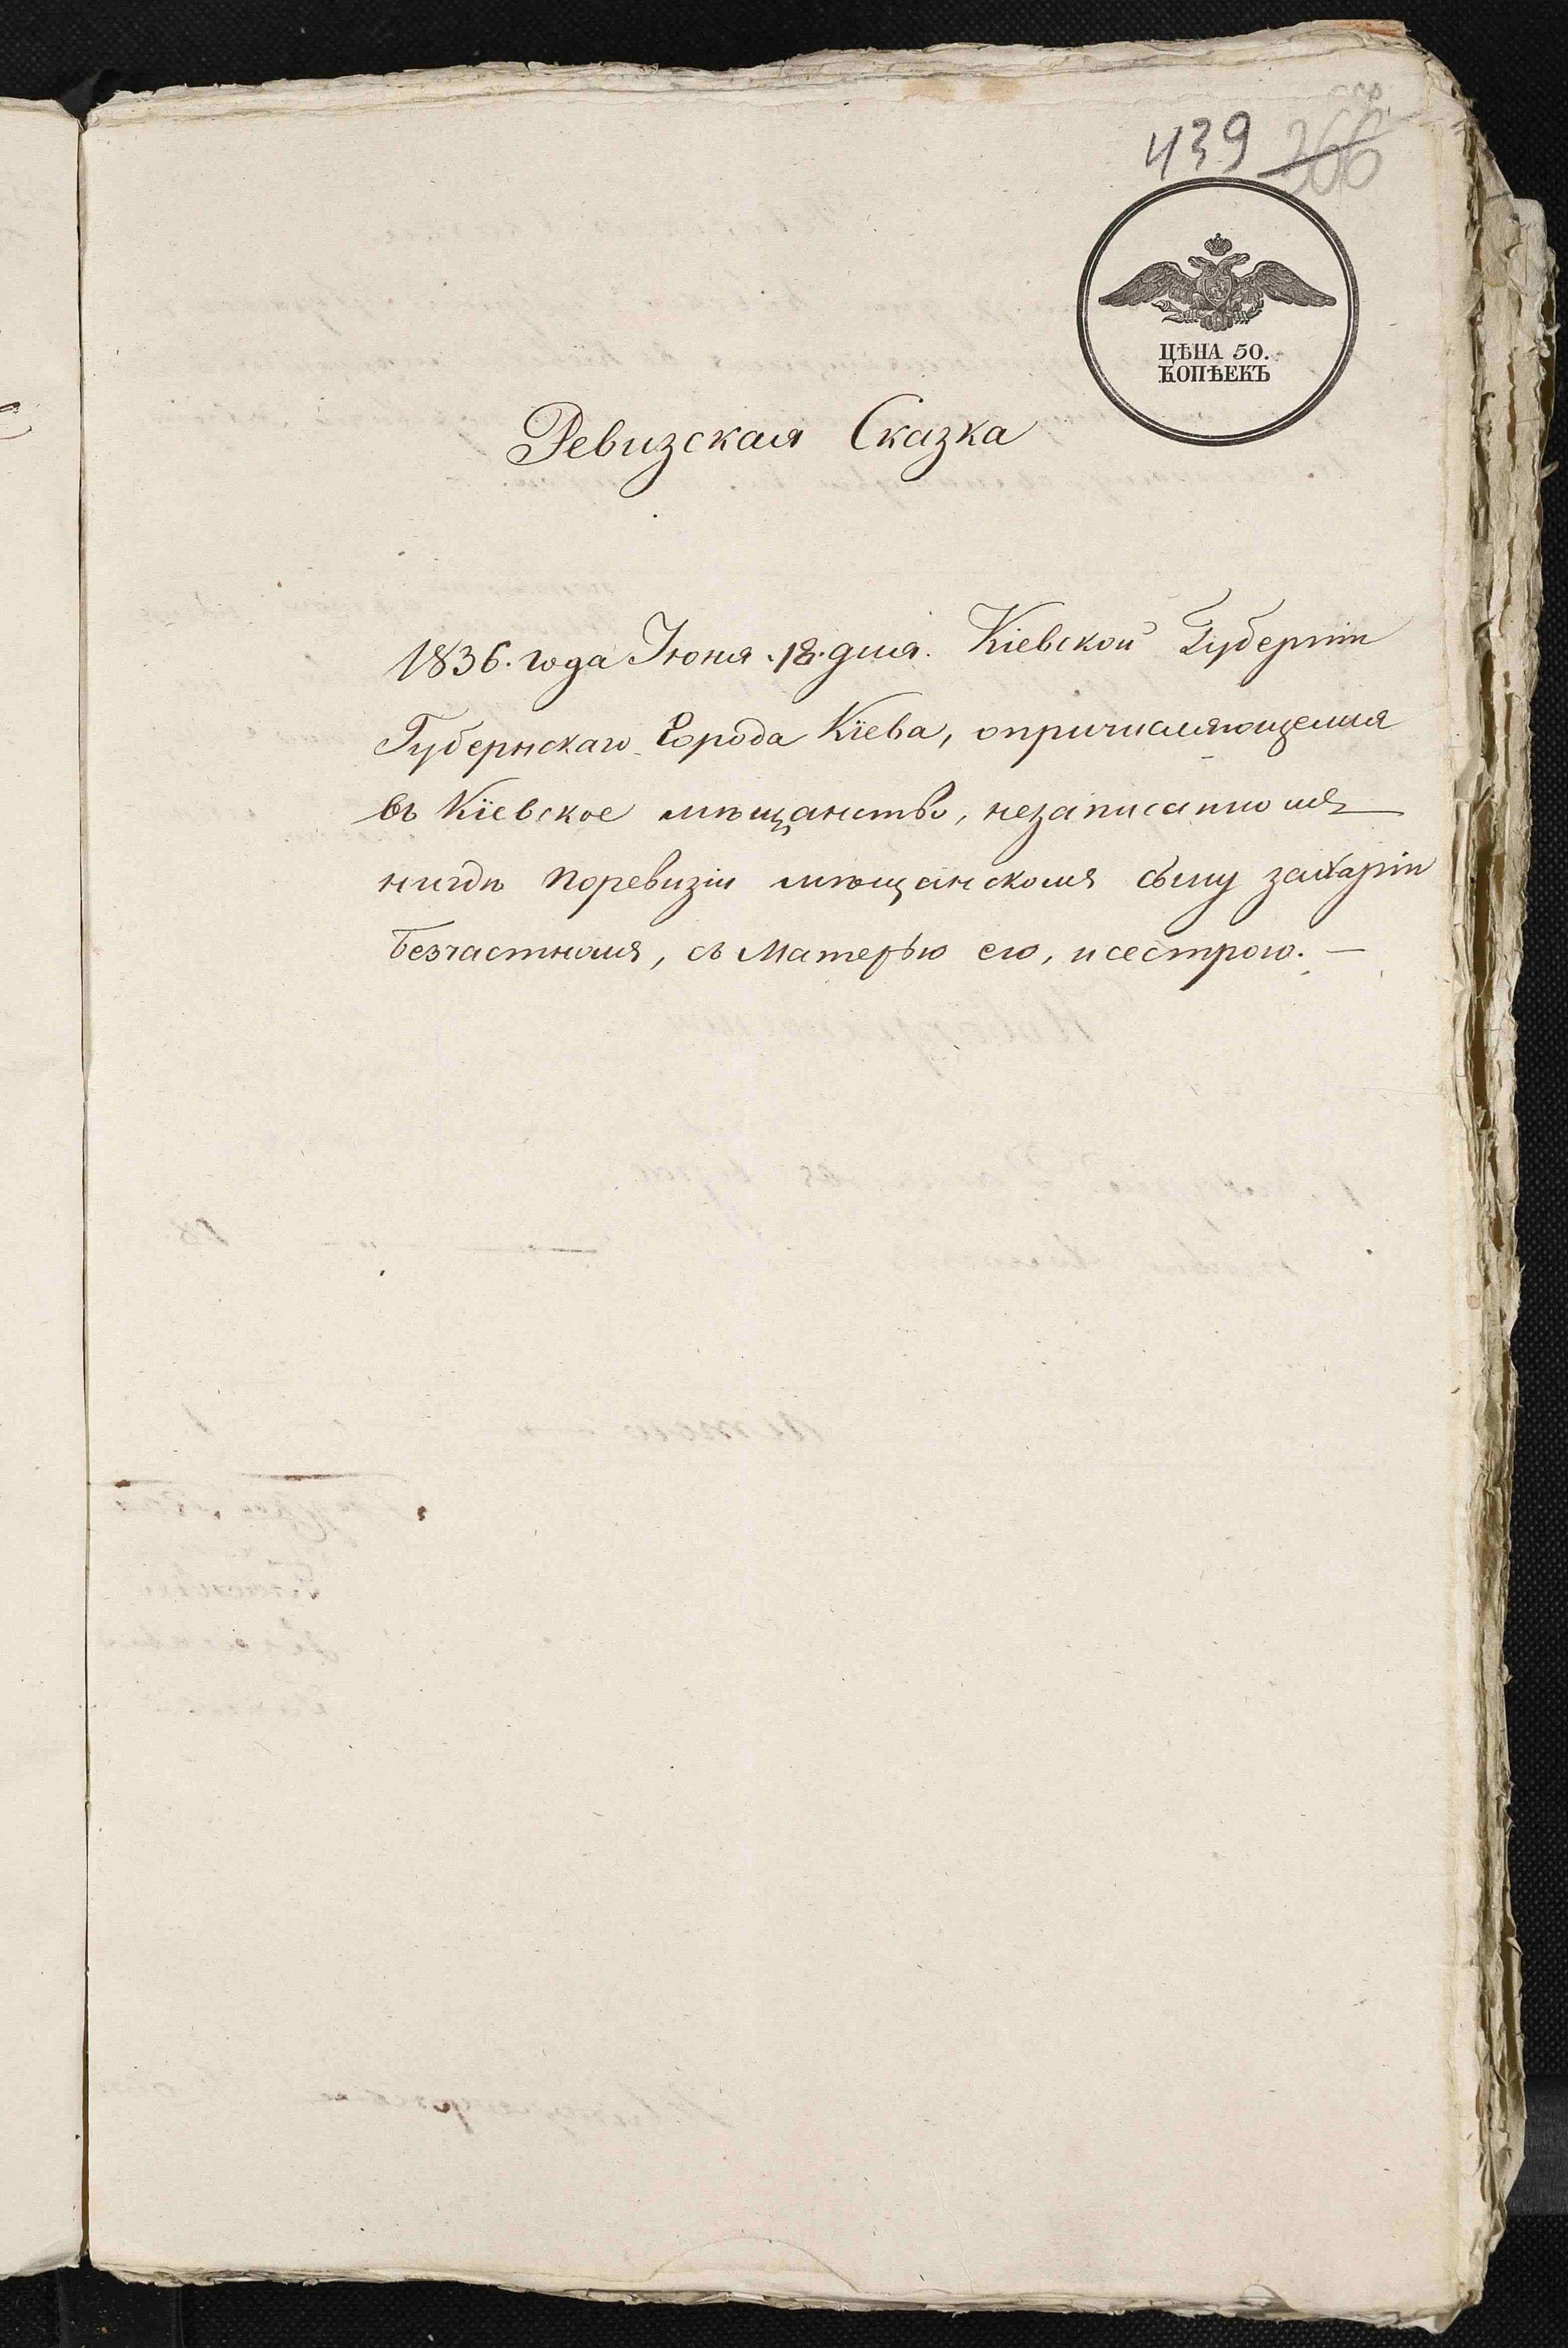 439 266
ЦѢНА 50.
КОПѢЕКЪ
Ревизская Сказка
1836. года Іюня .18. дня. Кіевской Губерніи
Губернскаго Города Кіева, опричисляющемся
въ Кіевское мѣщанство, незаписанномъ
нигдѣ поревизіи мѣщанскомъ сыну Захаріи
Безчастномъ, съ Матерью его, и сестрою. —